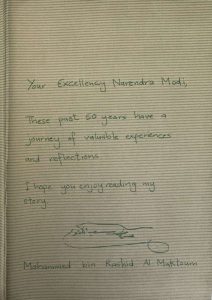 Your Excellency Narendra Modi,
These past 50 years have a
journey of valuable experiences
and reflections
I hope you enjoy reading my
story.
Mohammed bin Rashid Al Maktoum